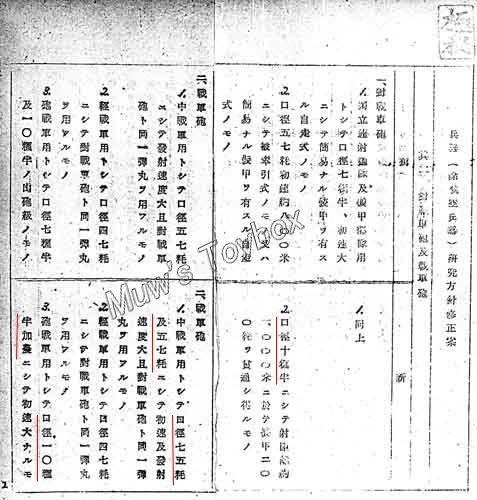 極秘
兵器(除航空兵器)研究方針修正案
對戰車砲及戰車砲
一、對戰車砲
1.獨立速射砲隊及機甲部隊用
トシテ口徑七糎半、初速大
ニシテ簡易ナル裝甲ヲ有ス
ル自走式ノモノ
2.口徑五七粍初速約八〇〇米
ニシテ被牽引式ノモノ又ハ
簡易ナル裝甲ヲ有スル自走
式ノモノ
二、戰車砲
1.中戰車用トシテ口徑五七粍
ニシテ發射速度大且對戰車
砲ト同一彈丸ヲ用フルモノ
2.輕戰車用トシテ口徑四七粍
ニシテ對戰車砲ト同一彈丸
ヲ用フルモノ
3.砲戰車用トシテ口徑七糎半
及一〇糎半ノ山砲級ノモノ
新
1.同上
2.口徑十糎半ニシテ射距離約
一、〇〇〇米ニ於テ裝甲二〇
〇粍ヲ貫通シ得ルモノ
二、戰車砲
1.中戰車用トシテ口徑七五粍
及五七粍ニシテ初速及發射
速度大且對戰車砲ト同一彈
丸ヲ用フルモノ
2.輕戰車用トシテ口徑四七粍
ニシテ對戰車砲ト同一彈丸
ヲ用フルモノ
3.砲戰車用トシテ口徑一〇糎
半加農ニシテ初速大ナルモ
Muw's Toybox